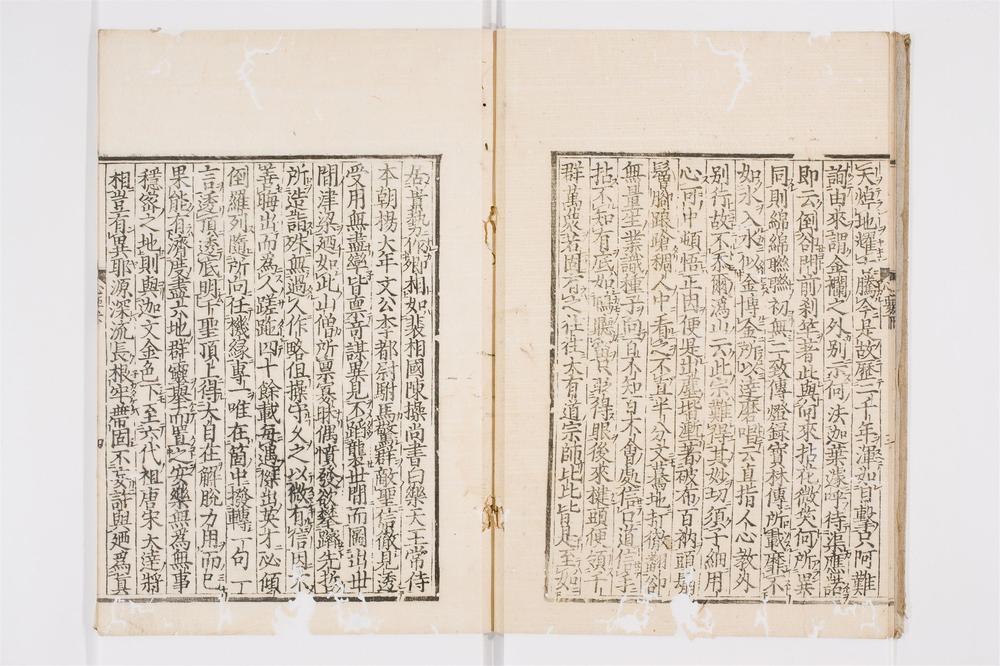 天焯地耀古騰今是故歷二千年渾如目擊只阿難
詢由來謂金襴之外別示何法迦葉遽呼待渠應諾
即云倒却門前刹竿著此與向來拈花微笑何所異
同則綿綿聯聯初無二致傳燈錄寶林傳所載靡不
如水入水似金博金所以達磨唱云直指人心教外
別行故不忝爾溈山云此宗難得其妙切須子細用
心可中頓悟正因便是出塵階漸著破布百衲頭
鬅腳踉蹌稠人中看之不直半分文驀地打徹翻却
無量生業識種子向直不知百不會處信口道信手
拈不知有底如聾得眼後來楗頭便須千
群萬衆若固有之往往本有道宗師比比皆是至如
居貴勢作卿相如裴相國陳操尚書白樂天王常侍
本朝楊大年文公李都尉駙馬驚群敵聖信徹見透
受用無盡學皆禀奇謀異見不蹈襲世間而圖出世
間津梁廼如此山僧所禀衰昧偶憤發欲攀躋先哲
所造詣殊無過人作略但操守久之以微有信因果
善晦出而爲人蹉跎四十餘載每遇傑出英才必傾
倒羅列隨所向任機緣專一唯在箇中撥轉一句一
言透頂透底明下聖頂上得大自在解脫力用而已
果能有濟度盡六地群靈擧而置之安樂無爲無事
穩密之地則與迦文金色下至六代祖唐宋大達將
相豈有異耶源深流長根牢蔕固不妄許與廼爲真